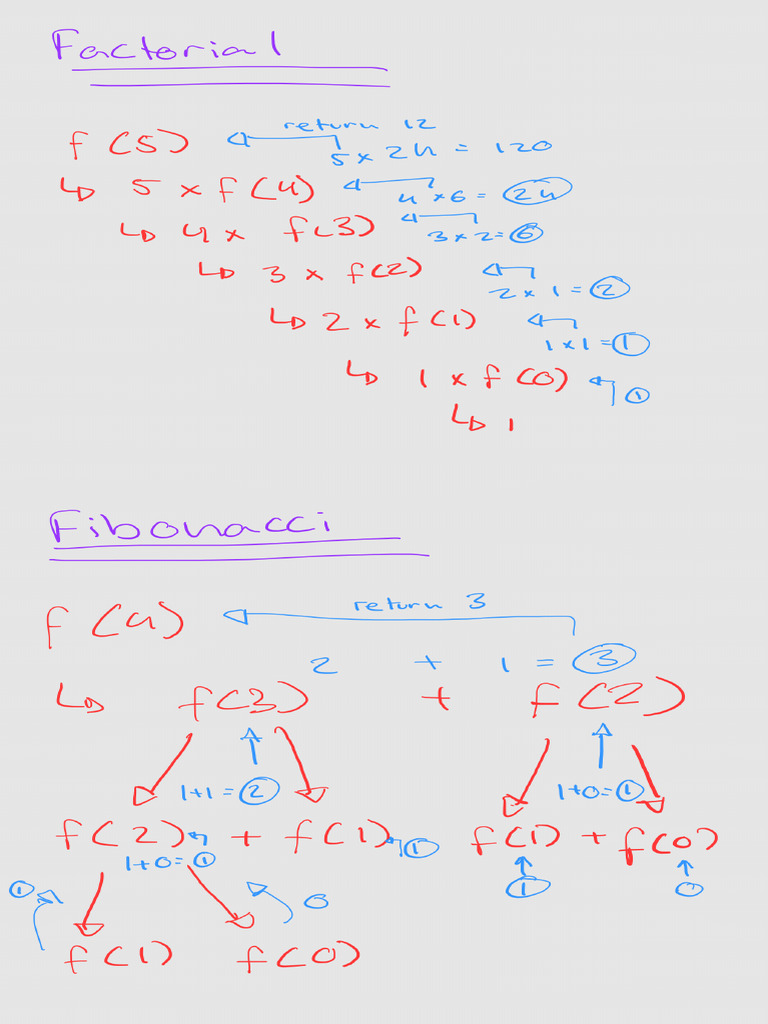 Factorial
return 12
f(5) 5 x 24 = 120
↳ 5 x f(4) 4 x 6 = 24
↳ 4 x f(3) 3 x 2 = 6
↳ 3 x f(2) 2 x 1 = 2
↳ 2 x f(1) 1 x 1 = 1
↳ 1 x f(0) 1
↳ 1
Fibonacci
return 3
f(4)
2 + 1 = 3
↳ f(3) + f(2)
1+1 = 2 1+0 = 1
f(2) + f(1) 1 f(1) + f(0)
1+0 = 1
1 0 1 0
f(1) f(0)